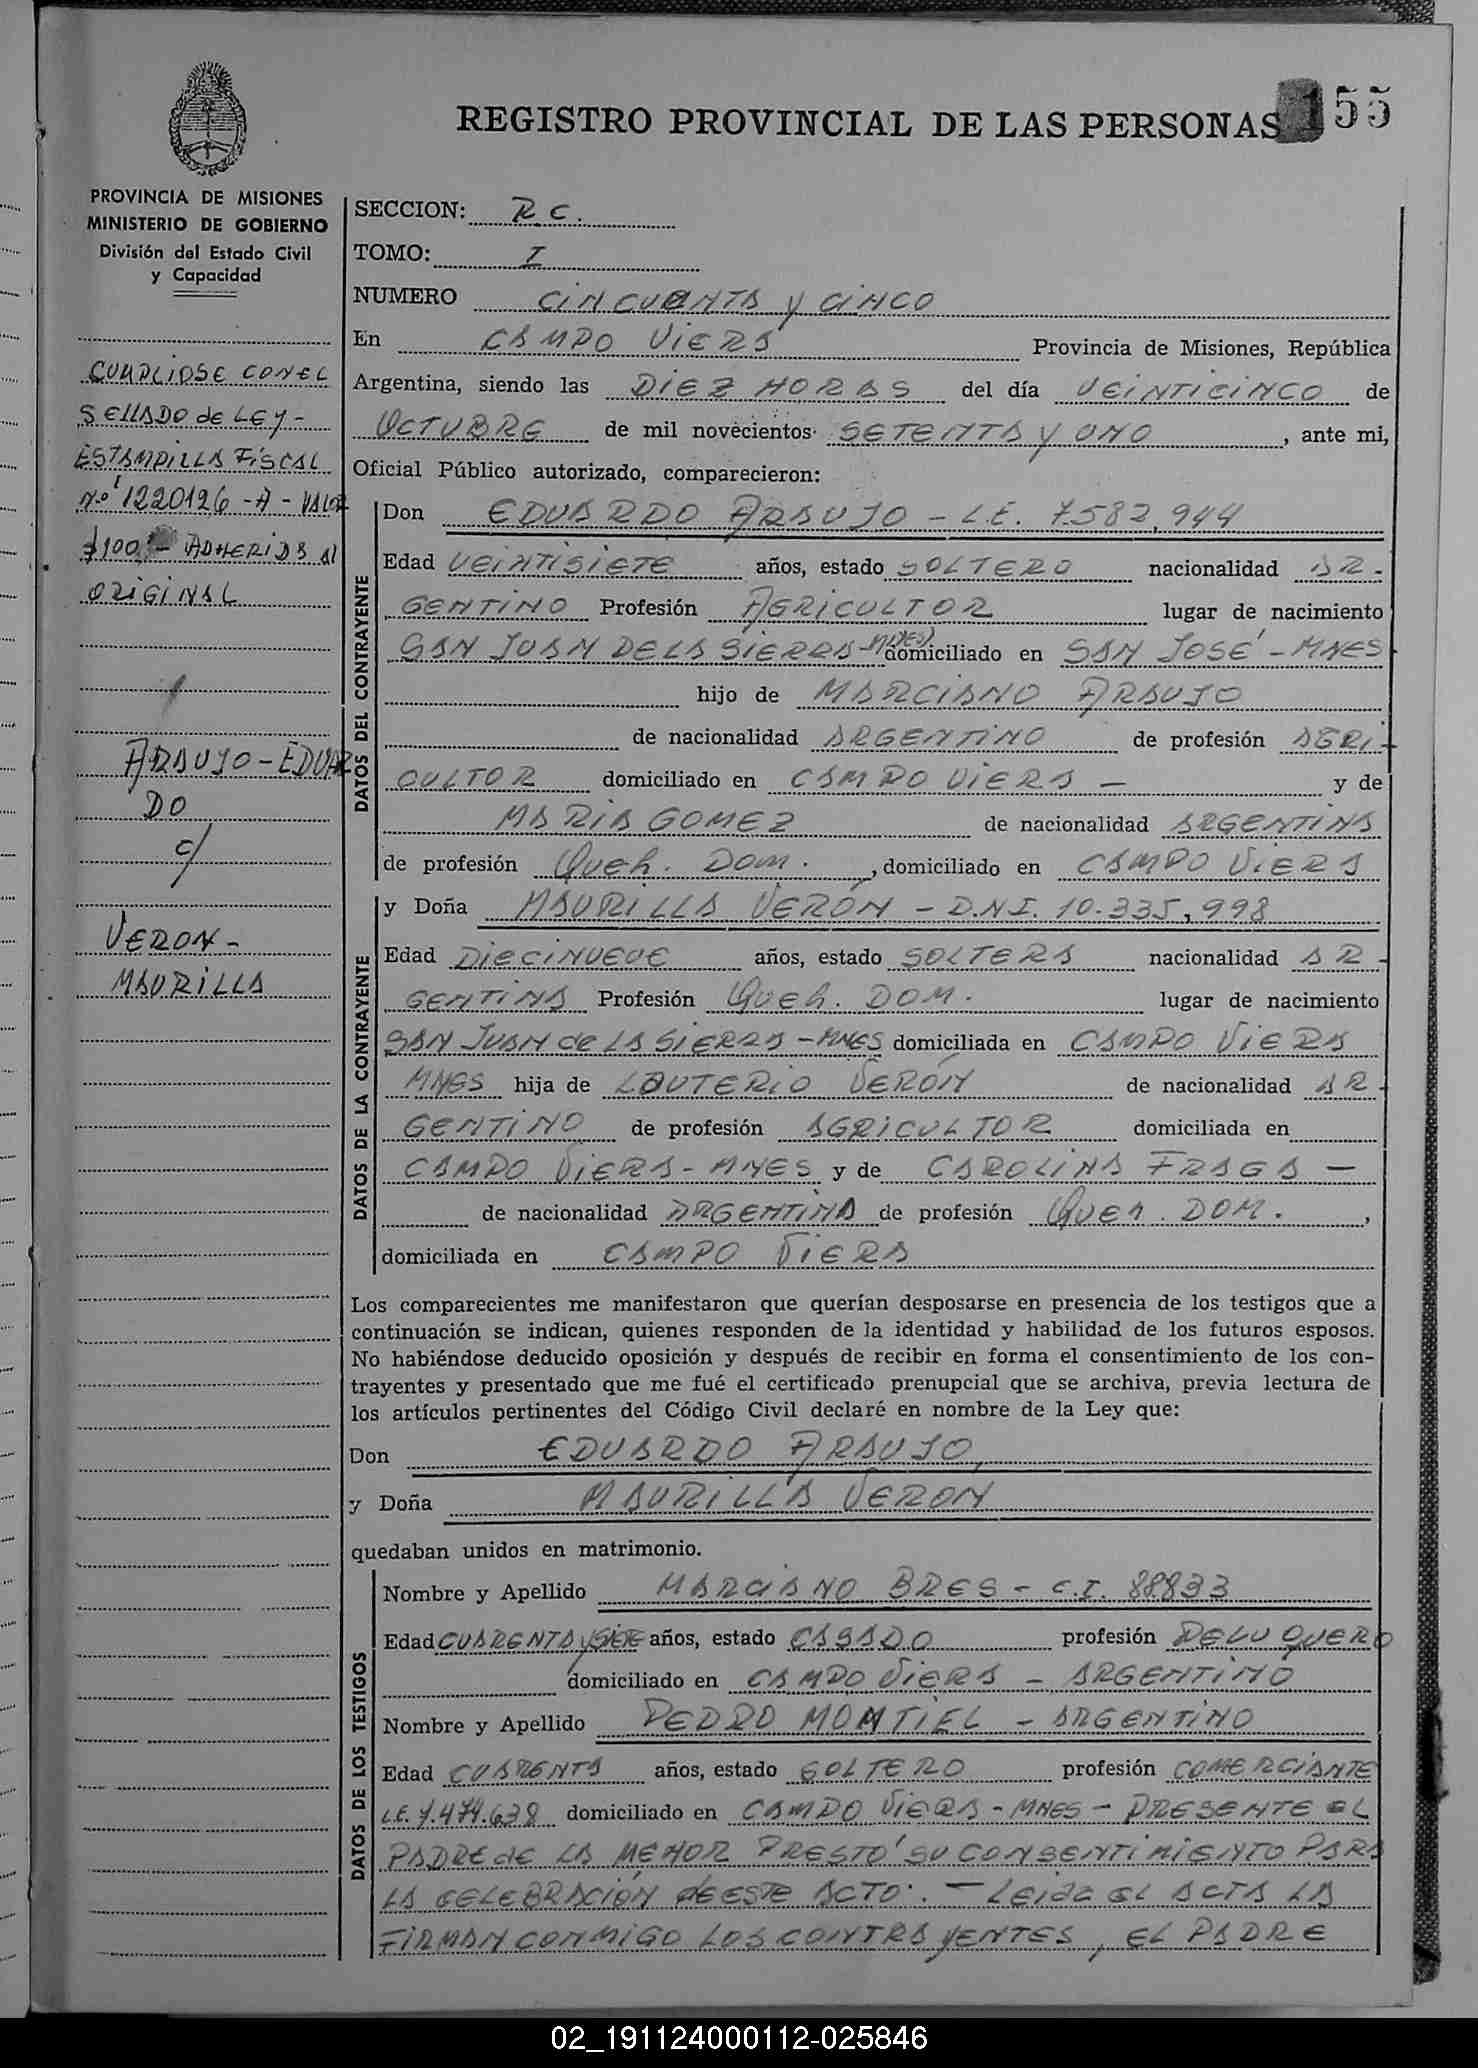 REGISTRO PROVINCIAL DE LAS PERSONAS 155
PROVINCIA DE MISIONES
MINISTERIO DE GOBIERNO
División del Estado Civil
y Capacidad
CUMPLIOSE CON EL
SELLADO de LEY -
ESTAMPILLA FISCAL
No 1220126 - A - VALOR
$100 - ADHERIDA al
ORIGINAL
ARAUJO - EDUAR
DO
c/
VERON -
MAURILLA
SECCION: R C.
TOMO: I
NUMERO CINCUENTA y CINCO
En CAMPO VIERA Provincia de Misiones, República
Argentina, siendo las DIEZ HORAS del día VEINTICINCO de
OCTUBRE de mil novecientos SETENTA y UNO, ante mi,
Oficial Público autorizado, comparecieron:
DATOS DEL CONTRAYENTE
Don EDUARDO ARAUJO - L.E. 7.582,944
Edad VEINTISIETE años, estado SOLTERO nacionalidad AR-
GENTINO Profesión AGRICULTOR lugar de nacimiento
SAN JUAN DE LA SIERRA - domiciliado en SAN JOSÉ - MNES
hijo de MARCIANO ARAUJO
de nacionalidad ARGENTINO de profesión AGRI-
CULTOR domiciliado en CAMPO VIERA - y de
MARIA GOMEZ de nacionalidad ARGENTINA
de profesión Queh. DOM., domiciliado en CAMPO VIERA
DATOS DE LA CONTRAYENTE
y Doña MAURILLA VERÓN - D.N.I. 10.335,998
Edad DIECINUEVE años, estado SOLTERA nacionalidad AR-
GENTINA Profesión Queh. DOM. lugar de nacimiento
SAN JUAN de LA SIERRA - MNES domiciliada en CAMPO VIERA
MNES hija de LAUTERIO VERÓN de nacionalidad AR-
GENTINO de profesión AGRICULTOR domiciliada en
CAMPO VIERA - MNES y de CAROLINA FRAGA -
de nacionalidad ARGENTINA de profesión Queh. DOM.,
domiciliada en CAMPO VIERA
Los comparecientes me manifestaron que querían desposarse en presencia de los testigos que a
continuación se indican, quienes responden de la identidad y habilidad de los futuros esposos.
No habiéndose deducido oposición y después de recibir en forma el consentimiento de los con-
trayentes y presentado que me fué el certificado prenupcial que se archiva, previa lectura de
los artículos pertinentes del Código Civil declaré en nombre de la Ley que:
Don EDUARDO ARAUJO,
y Doña MAURILLA VERON
quedaban unidos en matrimonio.
DATOS DE LOS TESTIGOS
Nombre y Apellido MARCIANO BRES - C.I. 88833
Edad CUARENTA y SIETE años, estado CASADO profesión PELUQUERO
domiciliado en CAMPO VIERA - ARGENTINO
Nombre y Apellido PEDRO MONTIEL - ARGENTINO
Edad CUARENTA años, estado SOLTERO profesión COMERCIANTE
L.E. 7.474.638 domiciliado en CAMPO VIERA - MNES - PRESENTE EL
PADRE de LA MENOR PRESTÓ SU CONSENTIMIENTO PARA
LA CELEBRACIÓN de ESTE ACTO. - Leida EL ACTA LA
FIRMAN CONMIGO LOS CONTRAYENTES, EL PADRE
02_191124000112-025846